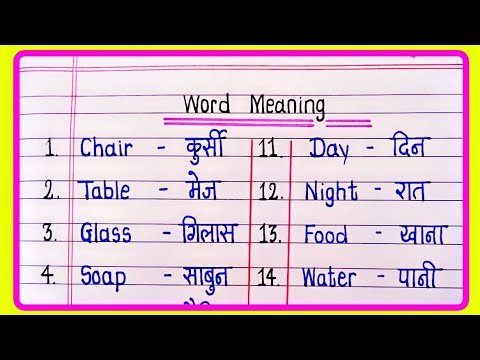 Word Meaning
1. Chair - कुर्सी 11. Day - दिन
2. Table - मेज 12. Night - रात
3. Glass - गिलास 13. Food - खाना
4. Soap - साबुन 14. Water - पानी